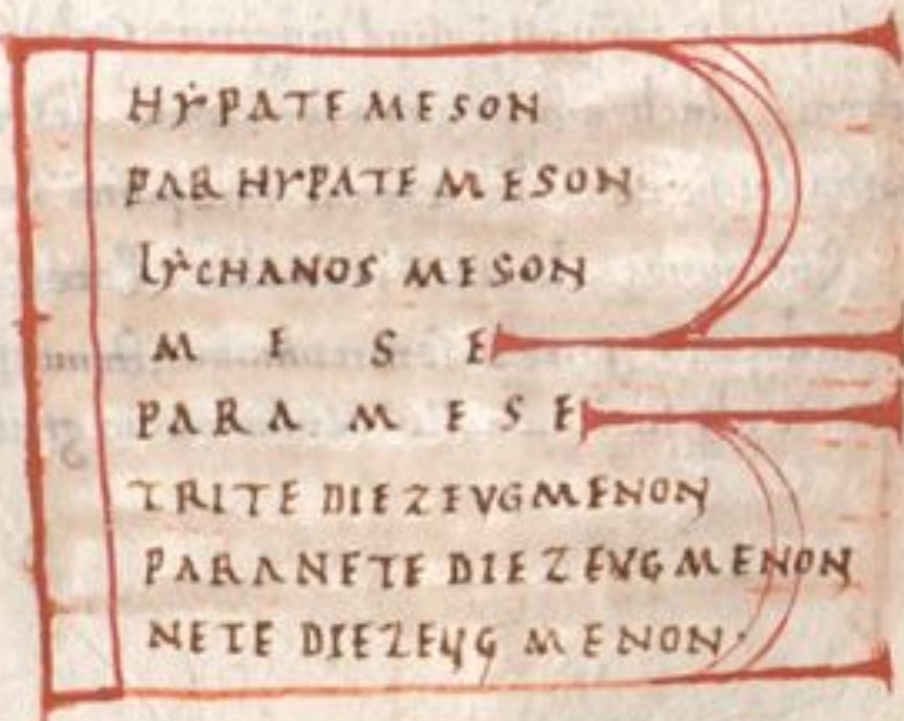 HẎPATE MESON
PARHYPATE MESON
LẎCHANOS MESON
M E S E
PARA M E S E
TRITE DIEZEVGMENON
PARANETE DIEZEVGMENON
NETE DIEZEVGMENON·